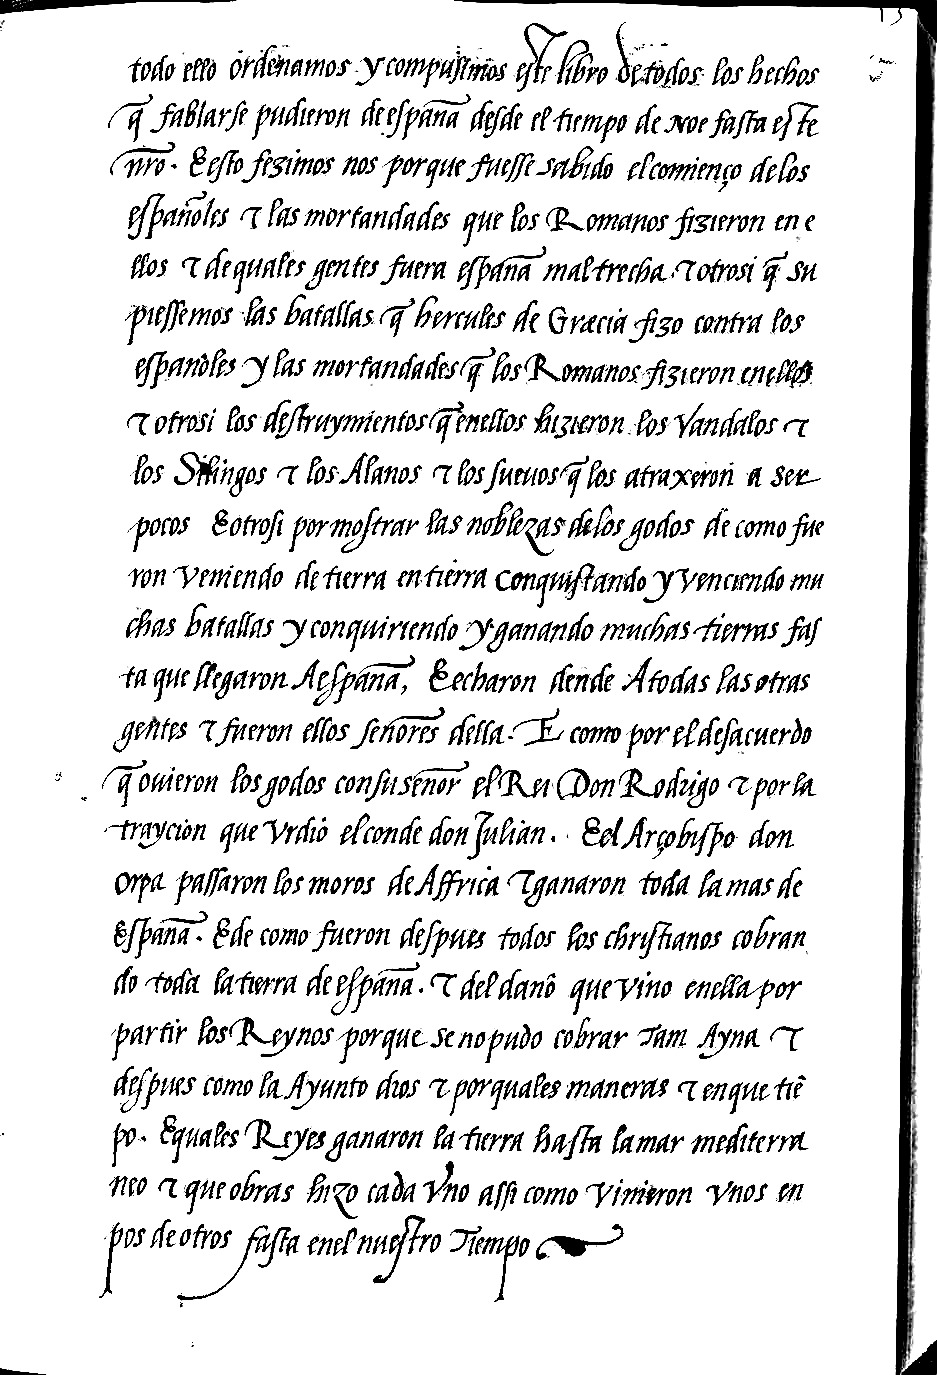 13
todo ello ordenamos y compusimos este libro de todos los hechos
q̃ fablarse pudieron de españa desde el tiempo de Noe fasta este
nr̃o. E esto fezimos nos porque fuesse sabido el comienço de los
españoles τ las mortandades que los Romanos fizieron en e
llos τ de quales gentes fuera españa maltrecha τ otrosi q̃ su
piessemos las batallas q̃ hercules de Græcia fizo contra los
españoles y las mortandades q̃ los Romanos fizieron en ellos
τ otrosi los destruymientos q̃ enellos hizieron los Vandalos τ
los Silingos τ los Alanos τ los sueuos q̃ los atraxeron a ser
pocos E otrosi por mostrar las noblezas delos godos de como fue
ron veniendo de tierra en tierra conquistando y venciendo mu
chas batallas y conquiriendo y ganando muchas tierras fas
ta que llegaron A españa, E echaron dende A todas las otras
gentes τ fueron ellos señores della. E como por el desacuerdo
q̃ ouieron los godos con su señor el Rei Don Rodrigo τ por la
traycion que Vrdió el conde don Julian. E el Arçobispo don
Orpa passaron los moros de Affrica τ ganaron toda la mas de
España. E de como fueron despues todos los christianos cobran
do toda la tierra de españa. τ del daño que vino enella por
partir los Reynos porque se no pudo cobrar Tam Ayna τ
despues como la Ayunto dios τ por quales maneras τ en que tiẽ
po. E quales Reyes ganaron la tierra hasta la mar mediterra
neo τ que obras hizo cada Vno assi como vinieron vnos en
pos de otros fasta enel nuestro Tiempo